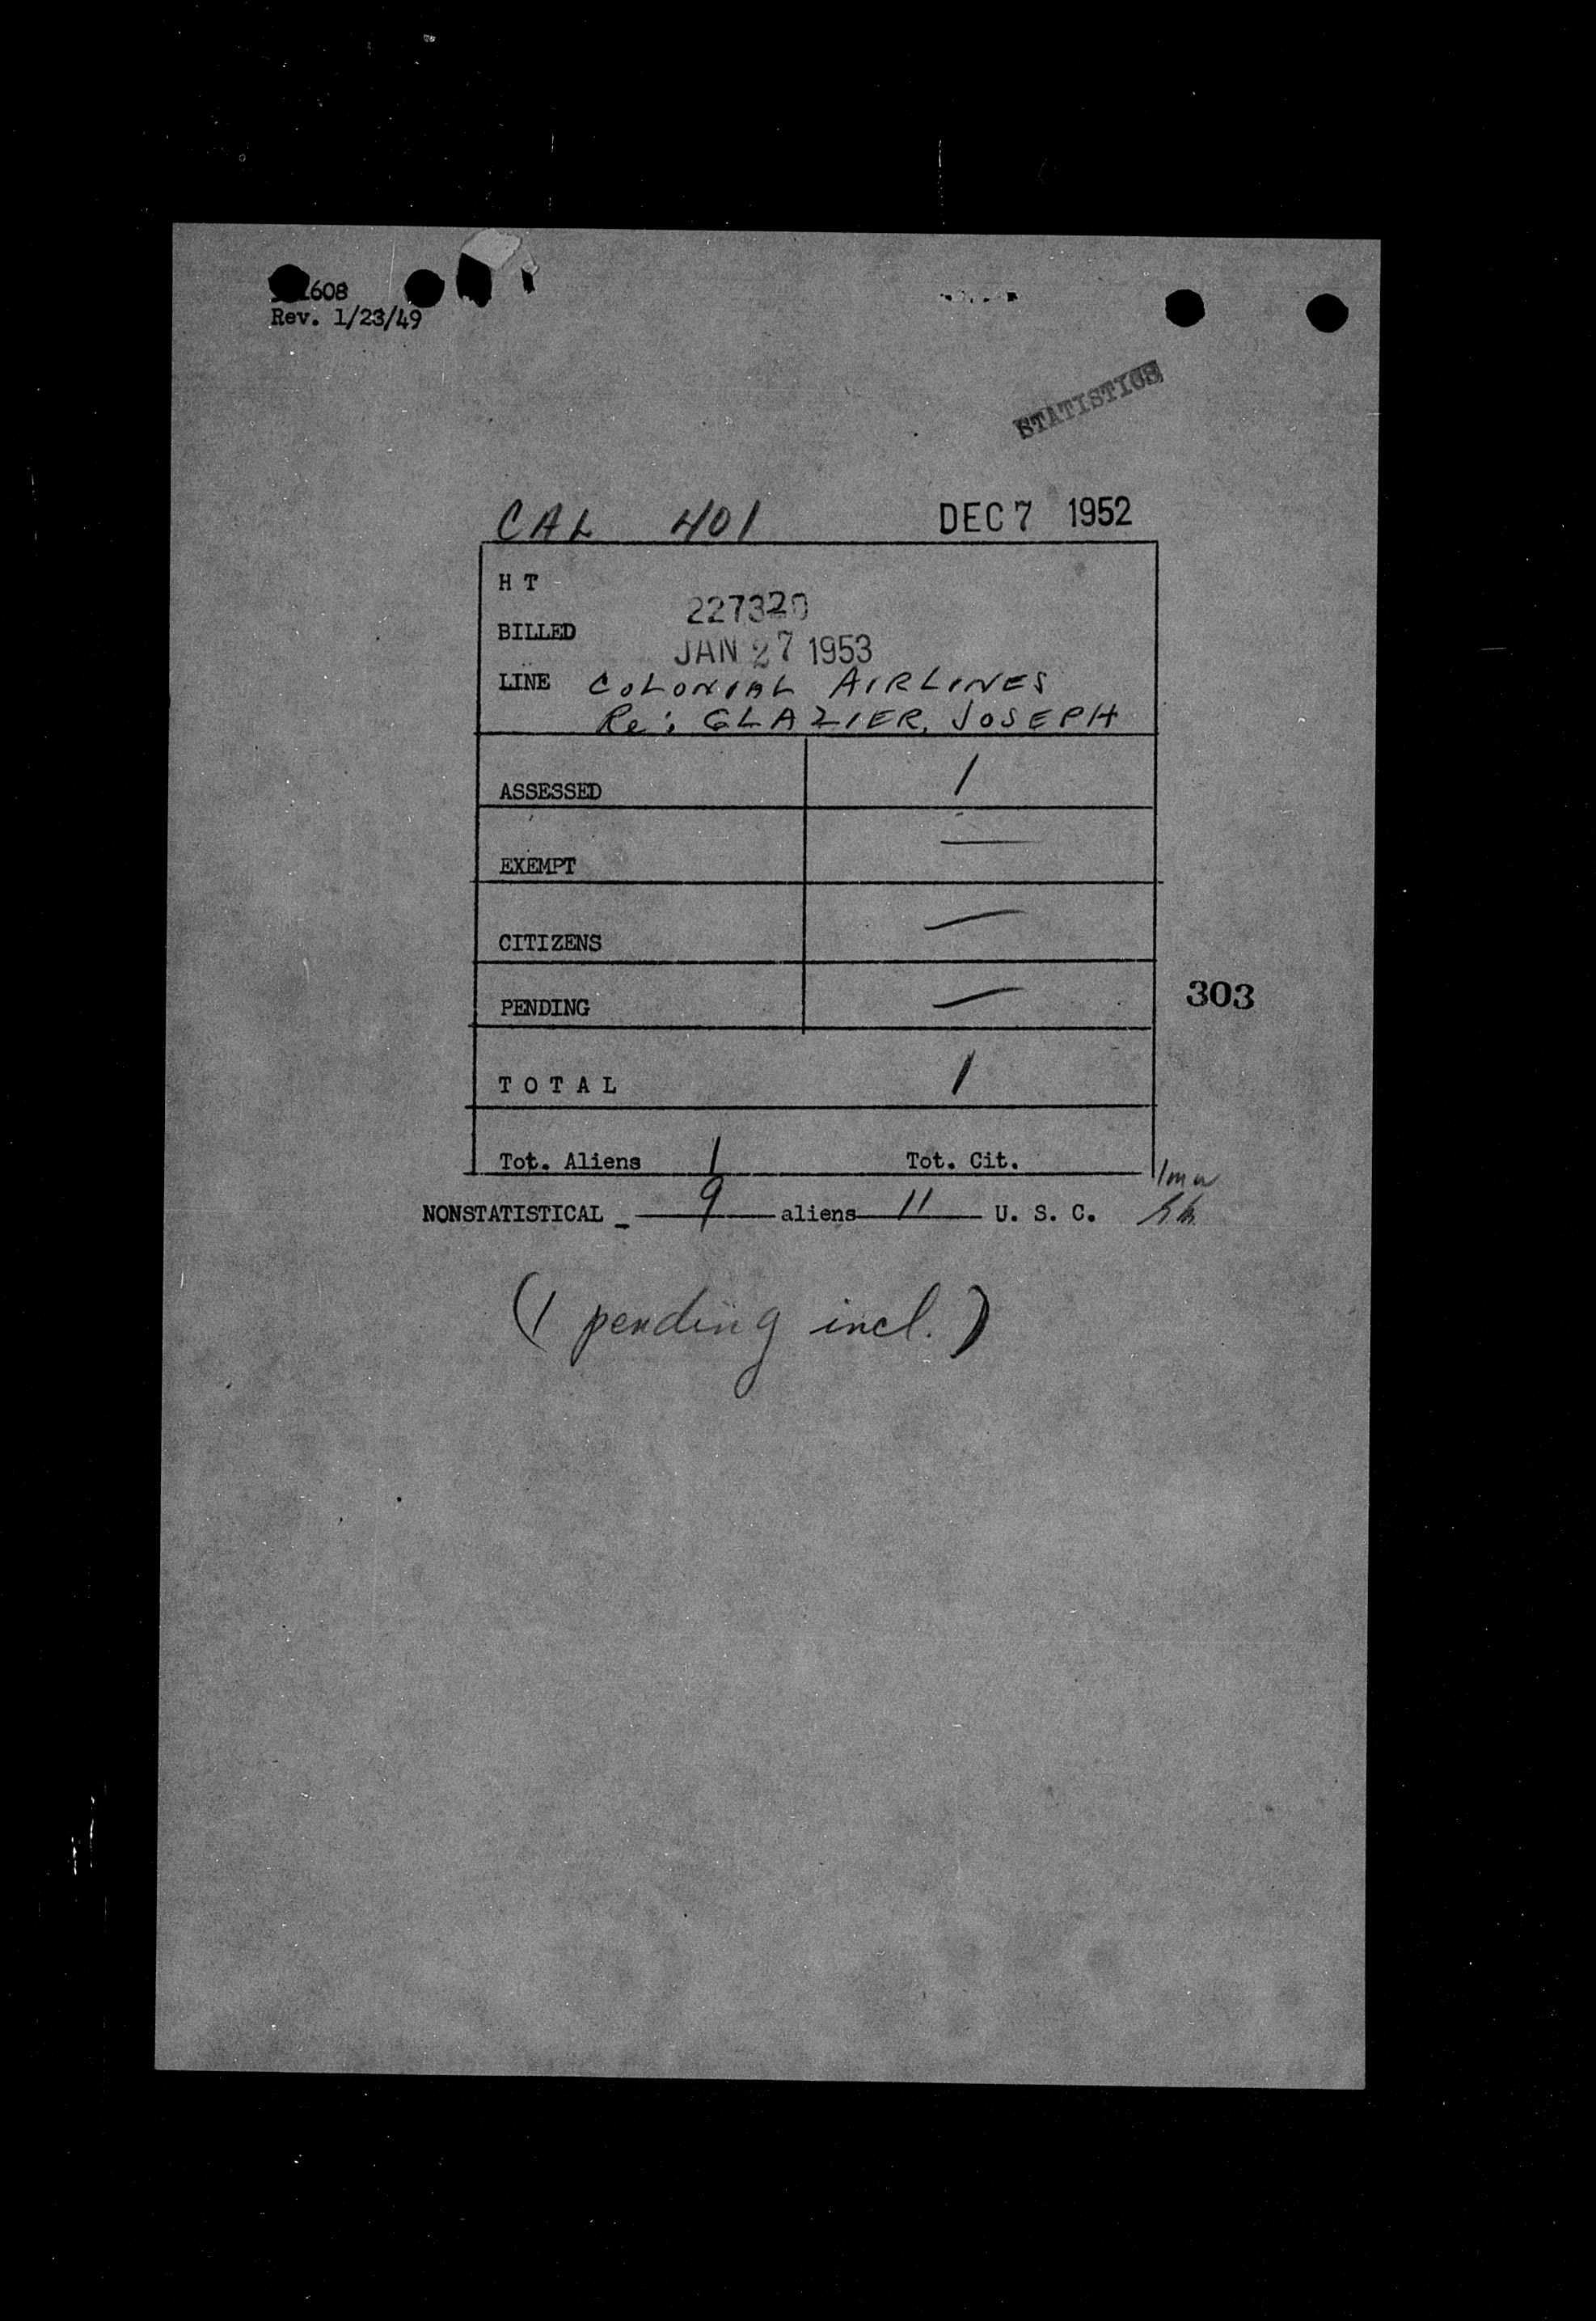 608
Rev. 1/23/49
STATISTICS
CAL 401 DEC 7 1952
H T
227320
BILLED
JAN 27 1953
LINE COLONIAL AIRLINES
Re: GLAZIER, JOSEPH
ASSESSED 1
EXEMPT —
CITIZENS —
PENDING —
303
T O T A L 1
Tot. Aliens 1 Tot. Cit.
NONSTATISTICAL - 9 aliens 11 U. S. C.
(1 pending incl.)